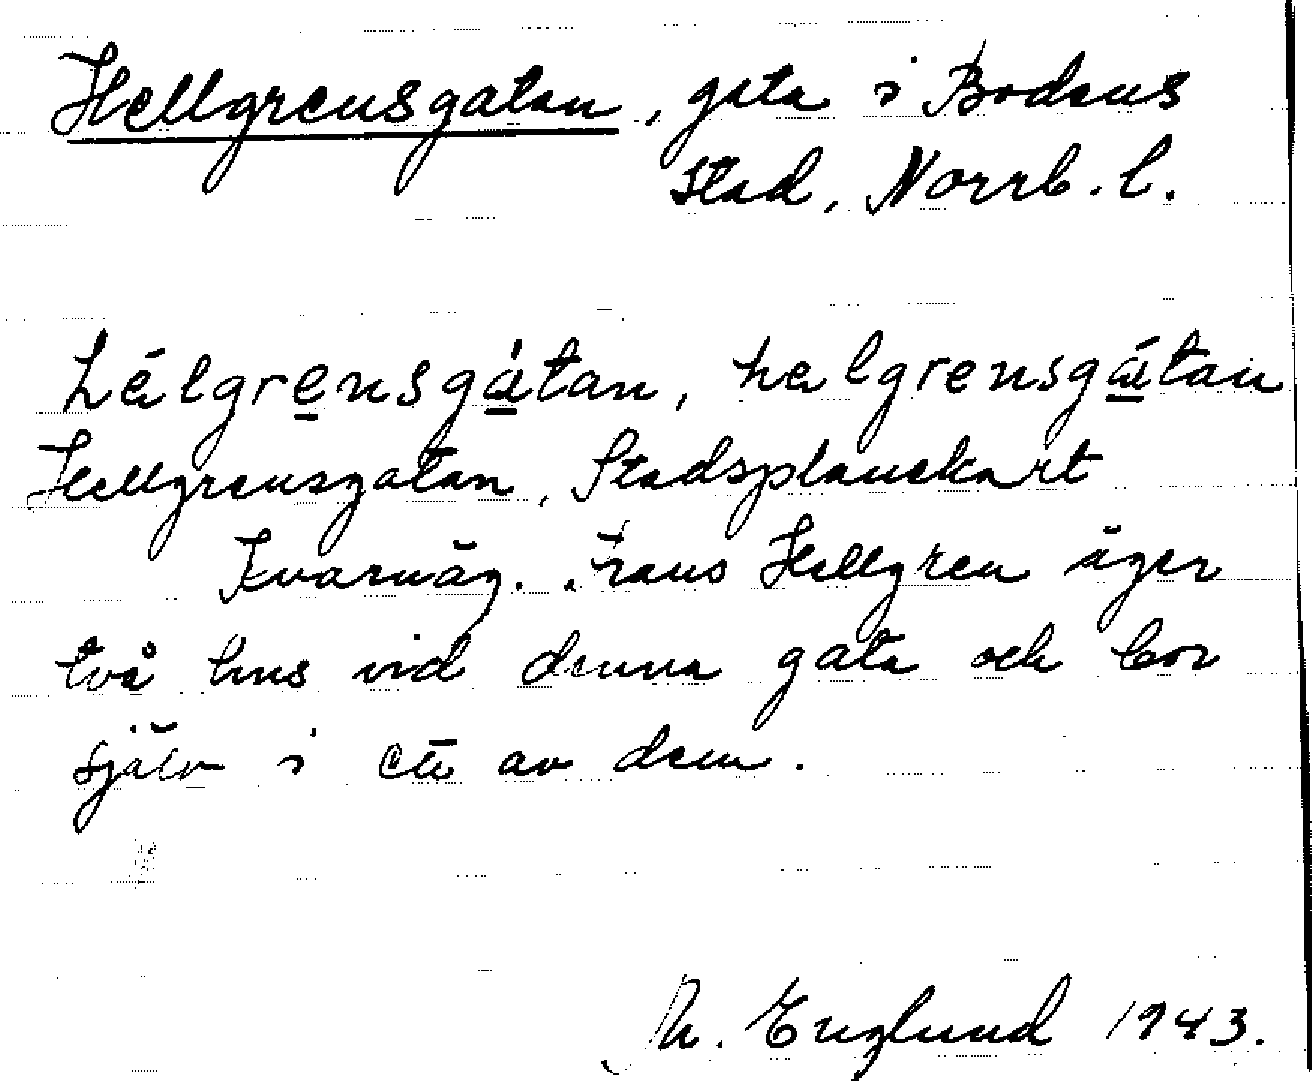 Hellgrensgatan, gata i Bodens
stad, Norrb. l.
hélgrensgátan, helgrensgátan
Hellgrensgatan, Stadsplanekart
Kvarnäg. Frans Hellgren äger
två hus vid denna gata och bor
själv i ett av dem.
N. Englund 1943.